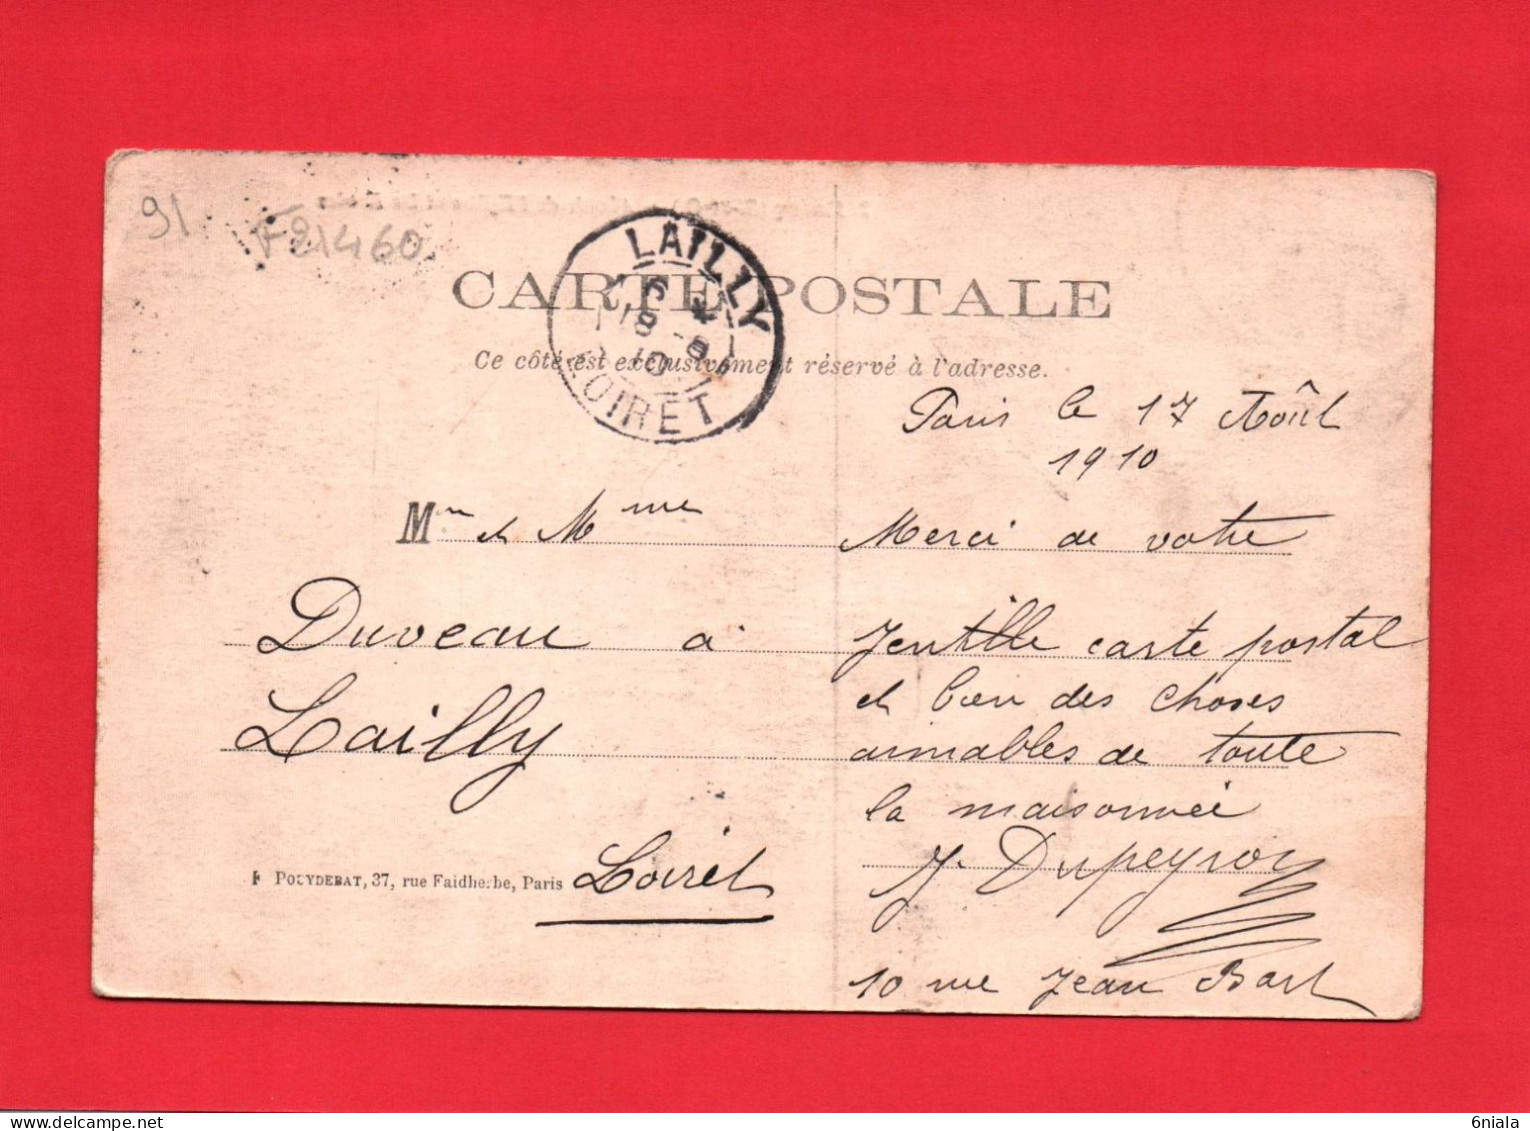 91
F21460
LAILLY
6 *
18 - 8
10
LOIRET
CARTE POSTALE
Ce côté est exclusivement réservé à l'adresse.
Paris le 17 Août
1910
Mr et Mme
Duveau à
Lailly
Loiret
POLYDEBAT, 37, rue Faidherbe, Paris
Merci de votre
Jentille carte postal
et bien des choses
aimables de toute
la maisonnée
J. Dupeyroy
10 rue Jean Bart
delcampe.net
6niala